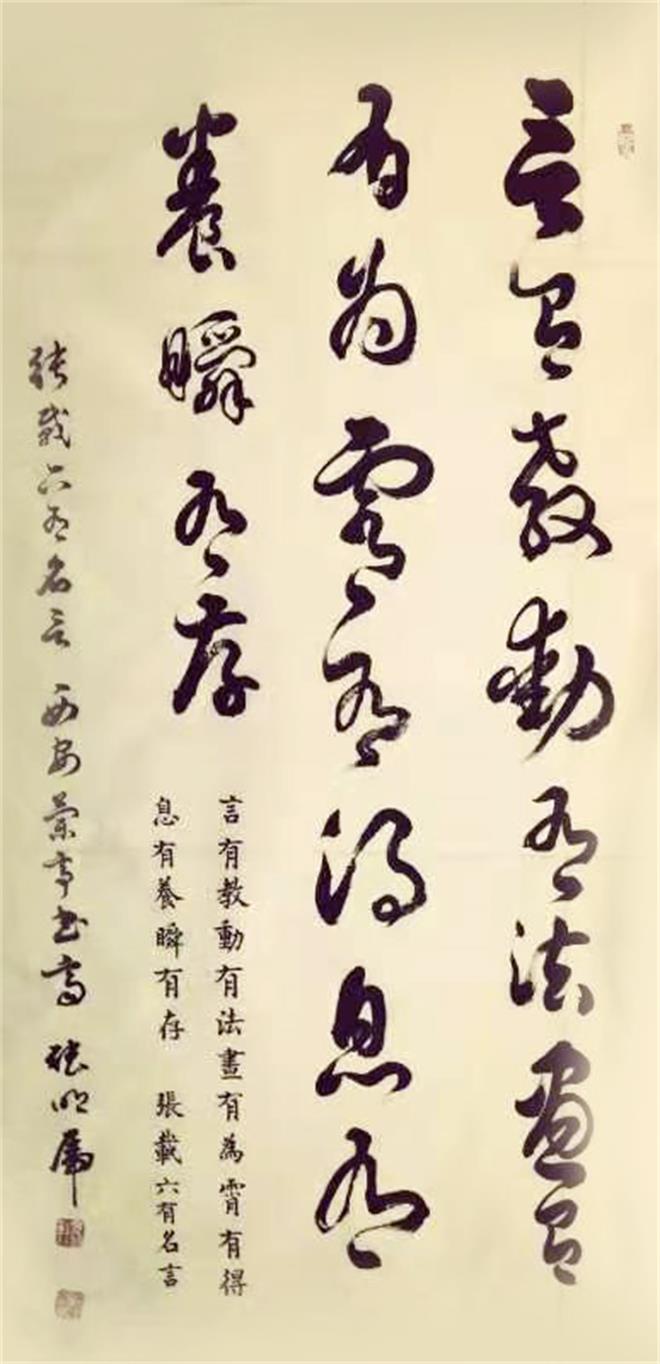 言有教動有法畫有
有为霄有得息有
養瞬有存
言有教動有法畫有為霄有得
息有養瞬有存 張載六有名言
張載六有名言 西安蘭亭书 張明虎